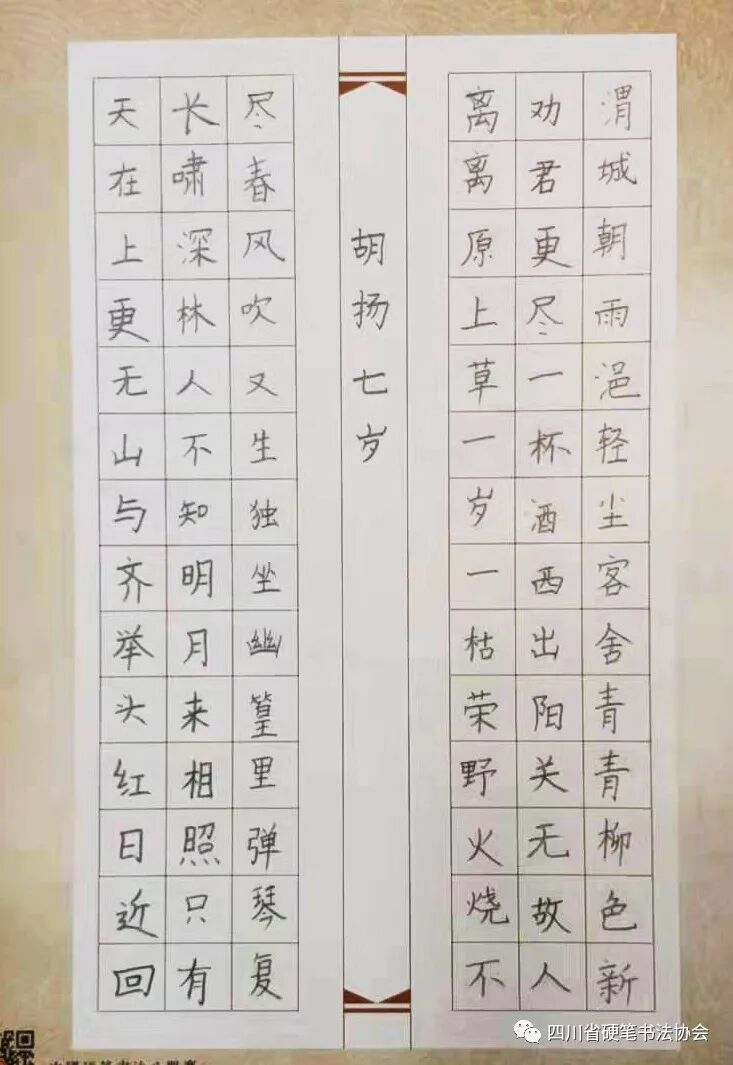 渭城朝雨浥轻尘客舍青青柳色新
劝君更尽一杯酒西出阳关无故人
离离原上草一岁一枯荣野火烧不
胡扬七岁
尽春风吹又生独坐幽篁里弹琴复
长啸深林人不知明月来相照只有
天在上更无山与齐举头红日近回
四川省硬笔书法协会